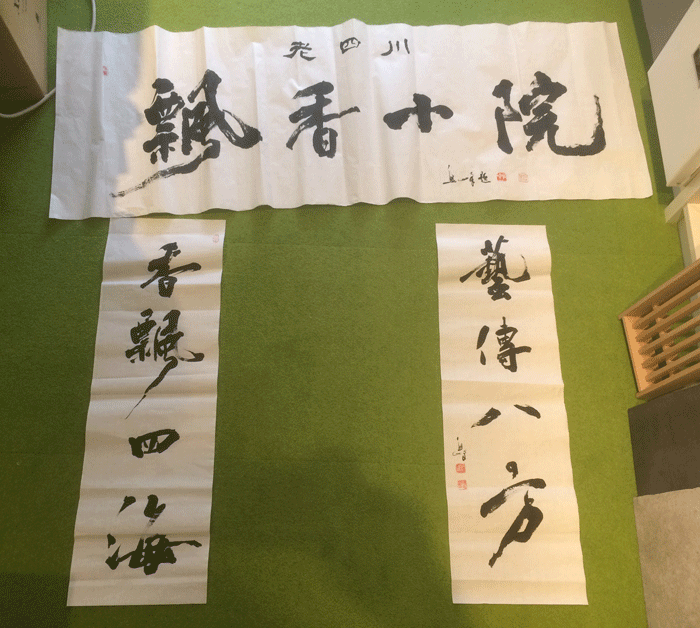 老四川
飄香小院
香飄四海
藝傳八方